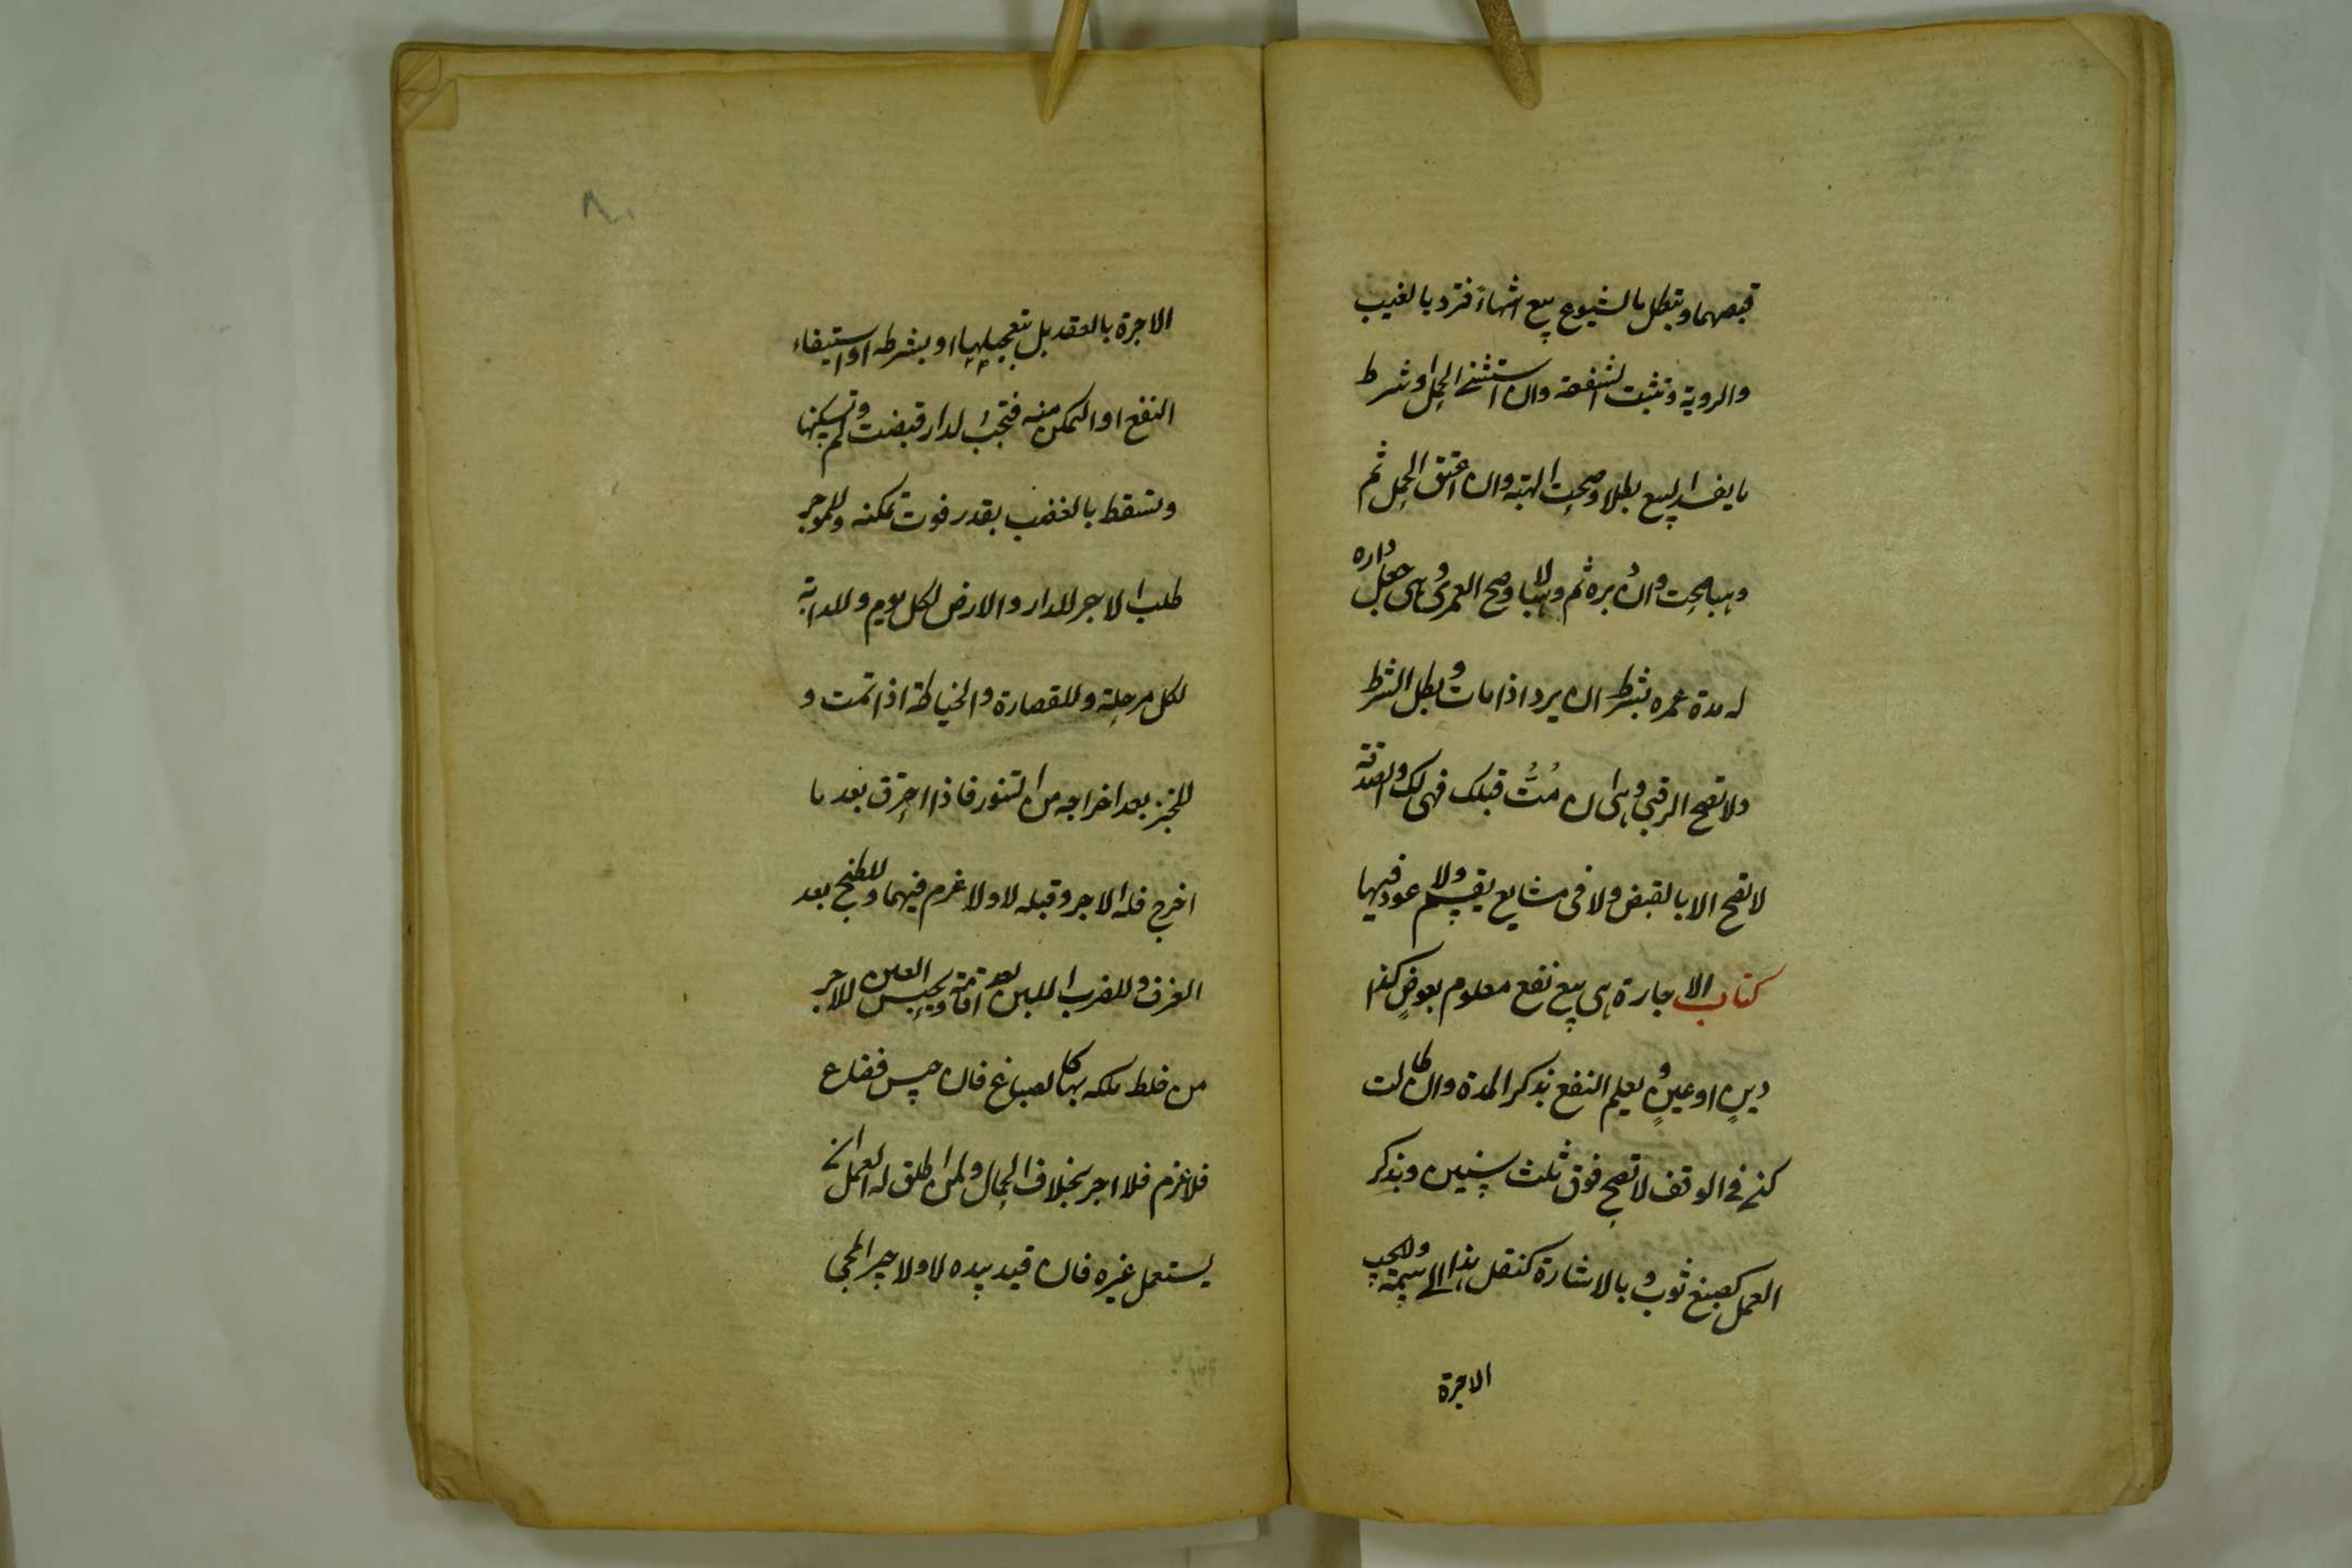 قبضهما وتبطل بالشيوع بيع انتهاءً فترد بالعيب
والروية وتثبت الشفعة وان استثنى الحمل او شرط
ما يفسد البيع بطلا وصحت الهبة وان اعتق الحمل ثم
وهبا صحت وان دبره ثم وهبا لا وصح العمرى وهى جعل داره
له مدة عمره بشرط ان يرد اذا مات وبطل الشرط
ولا تصح الرقبى وهى ان مُتُّ قبلك فهى لك والصدقة
لا تصح الا بالقبض ولا فى مشايع يقسم ولا عود فيها
كتاب الاجارة هى بيع نفع معلوم بعوضٍ كذا
دينٍ او عينٍ ويعلم النفع بذكر المدة وان طالت
لكن فى الوقف لا تصح فوق ثلث سنين وبذكر
العمل كصبغ ثوب وبالاشارة كنقل هذا الى ثمه ولا تجب
الاجرة
الاجرة بالعقد بل بتعجيلها او بشرطه او استيفاء
النفع او التمكن منه فتجب لدار قبضت ولم تسكنها
وتسقط بالغصب بقدر فوت تمكنه وللموجر
طلب الاجر للدار والارض لكل يوم وللدابة
لكل مرحلة وللقصارة والخياطة اذا تمت و
للخبز بعد اخراجه من التنور فاذا احترق بعد ما
اخرج فله الاجر وقبله لا ولا غرم فيهما وللطبخ بعد
الغرف وللضرب اللبن بعد اقامة ويحبس العين للاجر
من خلط ملكه بها كالصباغ فان حبس فضاع
فلا غرم فلا اجر بخلاف الحمال ولمن اطلق له العمل ان
يستعمل غيره فان قيد بيده لا ولا جير المجى